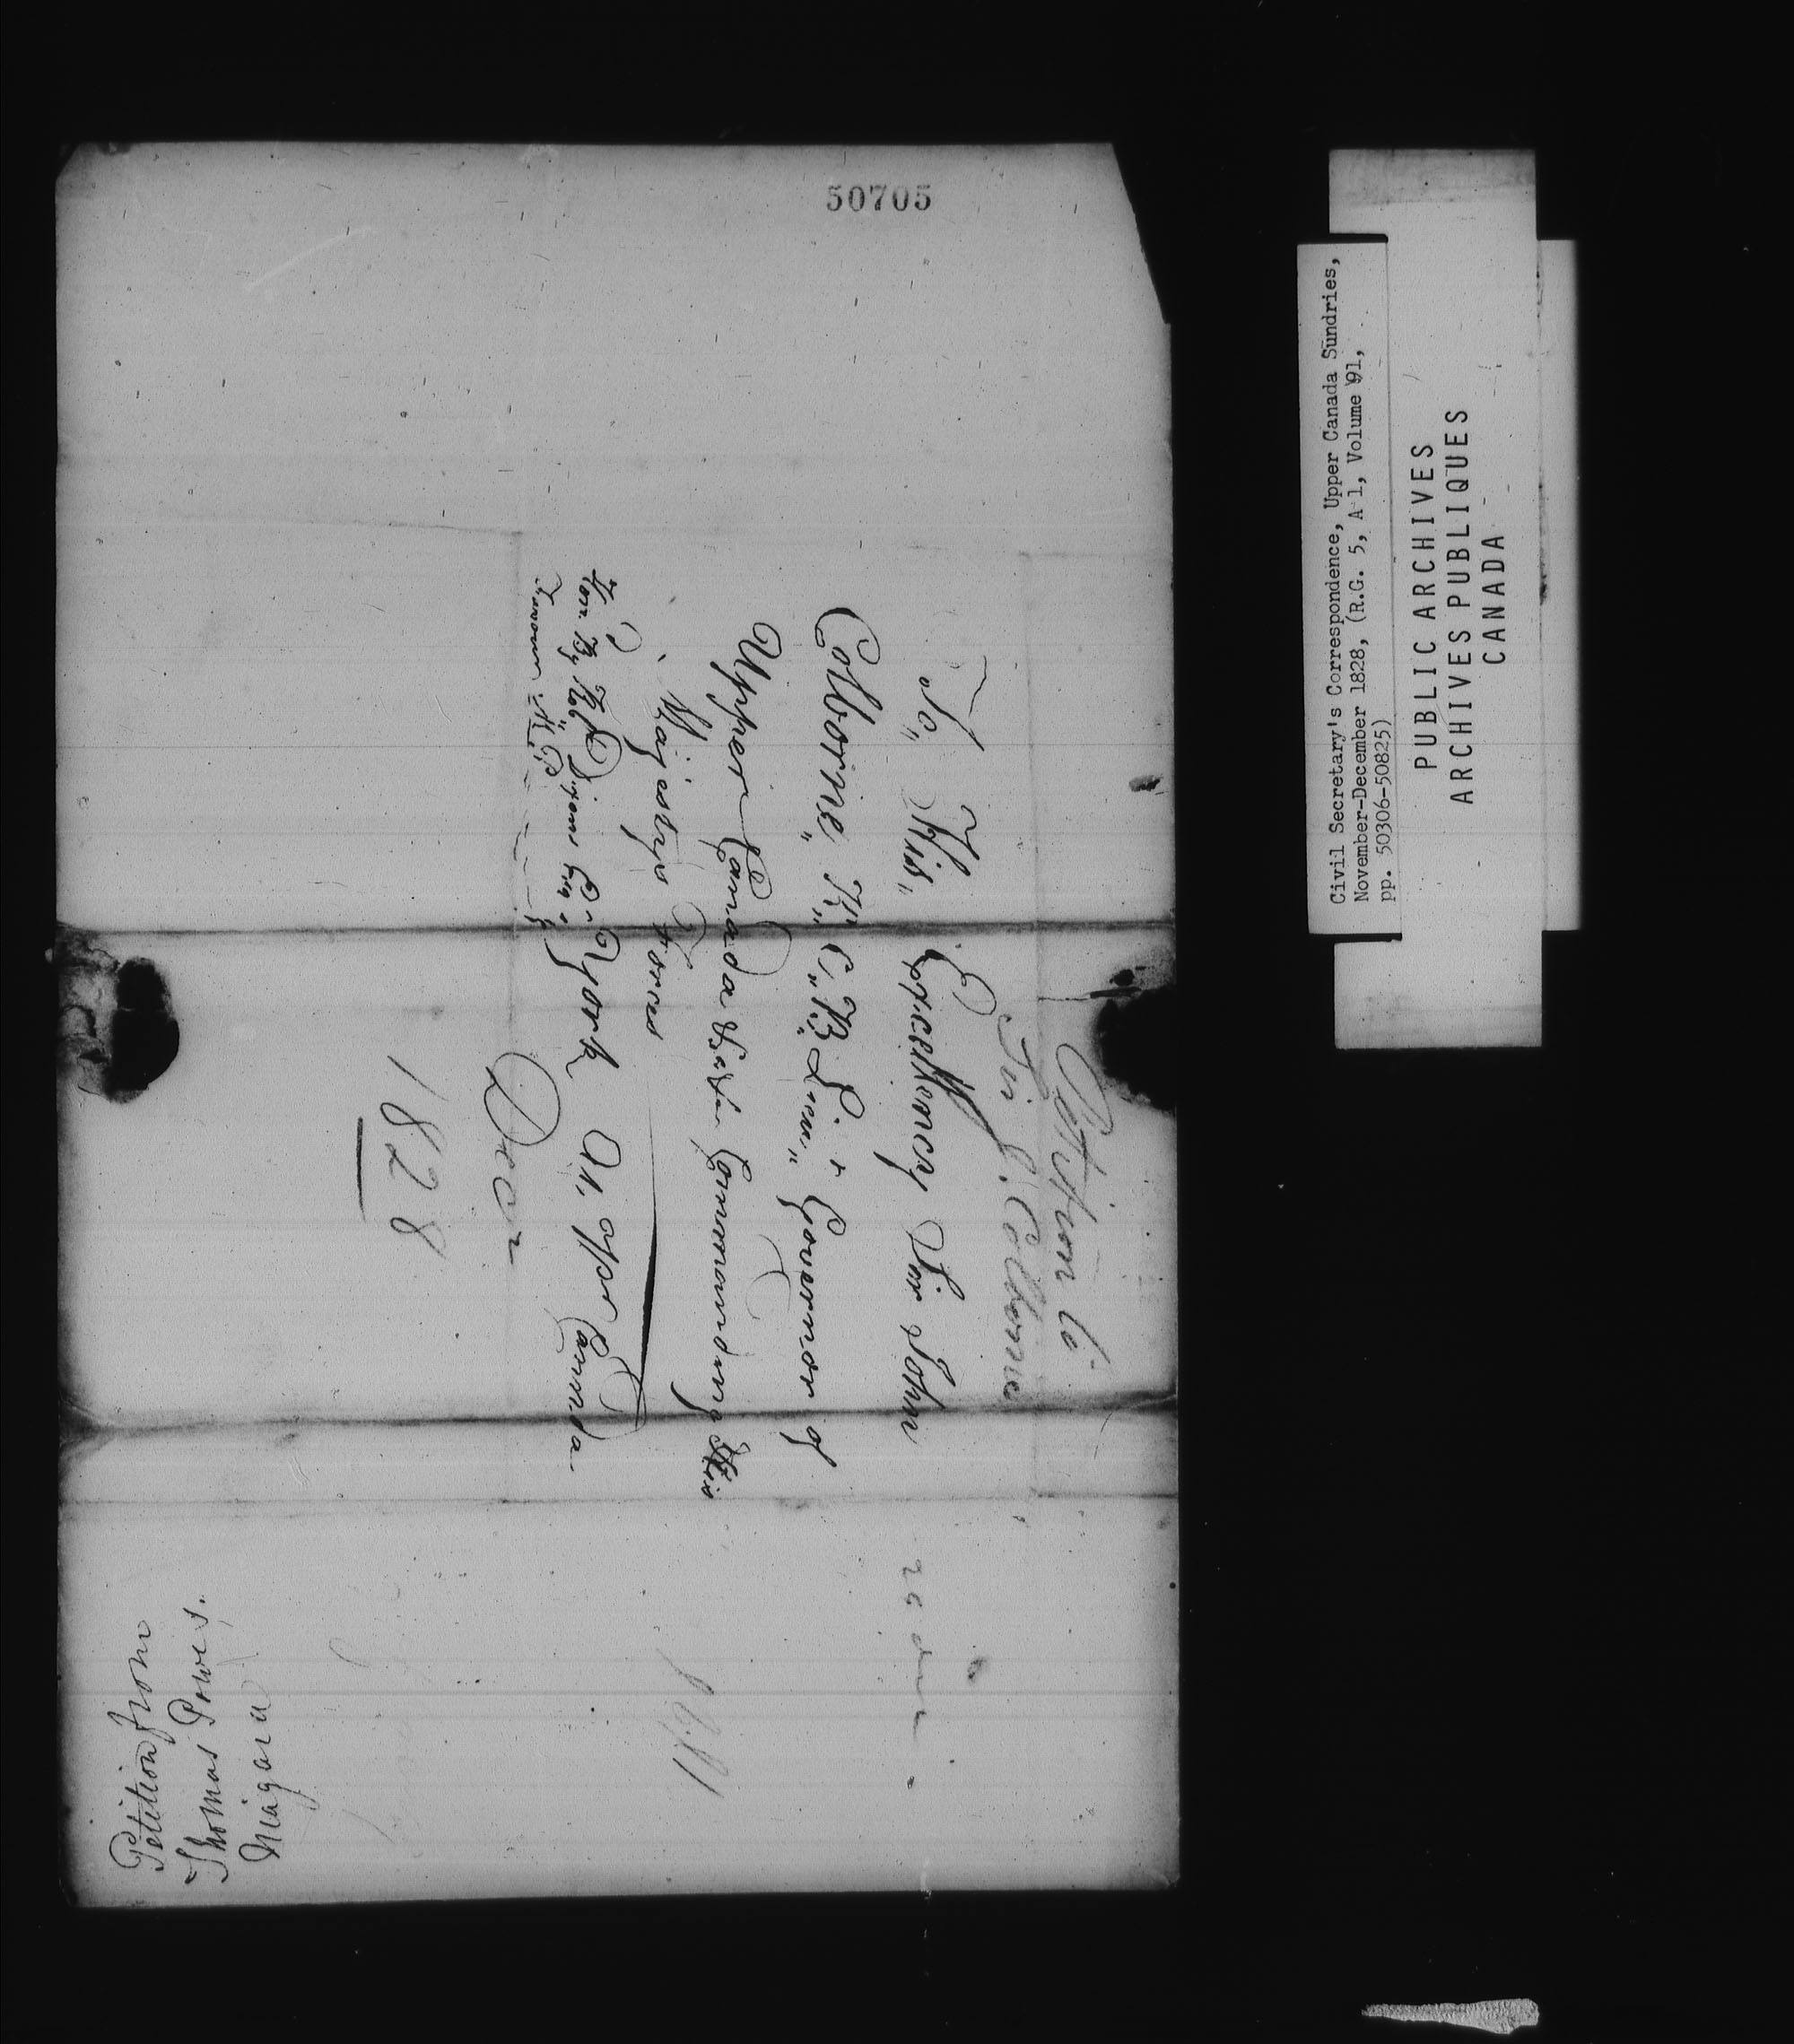 50705
Petition to
Sir J. Colborne
To, His, Excellency Sir John
Colborne, K,, C,, B,, Governor of
Upper Canada Commanding His
Majestys Forces
York Canada
Decr
1828
Petition from
Thomas Powes.
Niagara
Civil Secretary's Correspondence, Upper Canada Sundries,
November-December 1828, (R.G. 5, A 1, Volume 91,
pp. 50306-50825)
PUBLIC ARCHIVES
ARCHIVES PUBLIQUES
CANADA